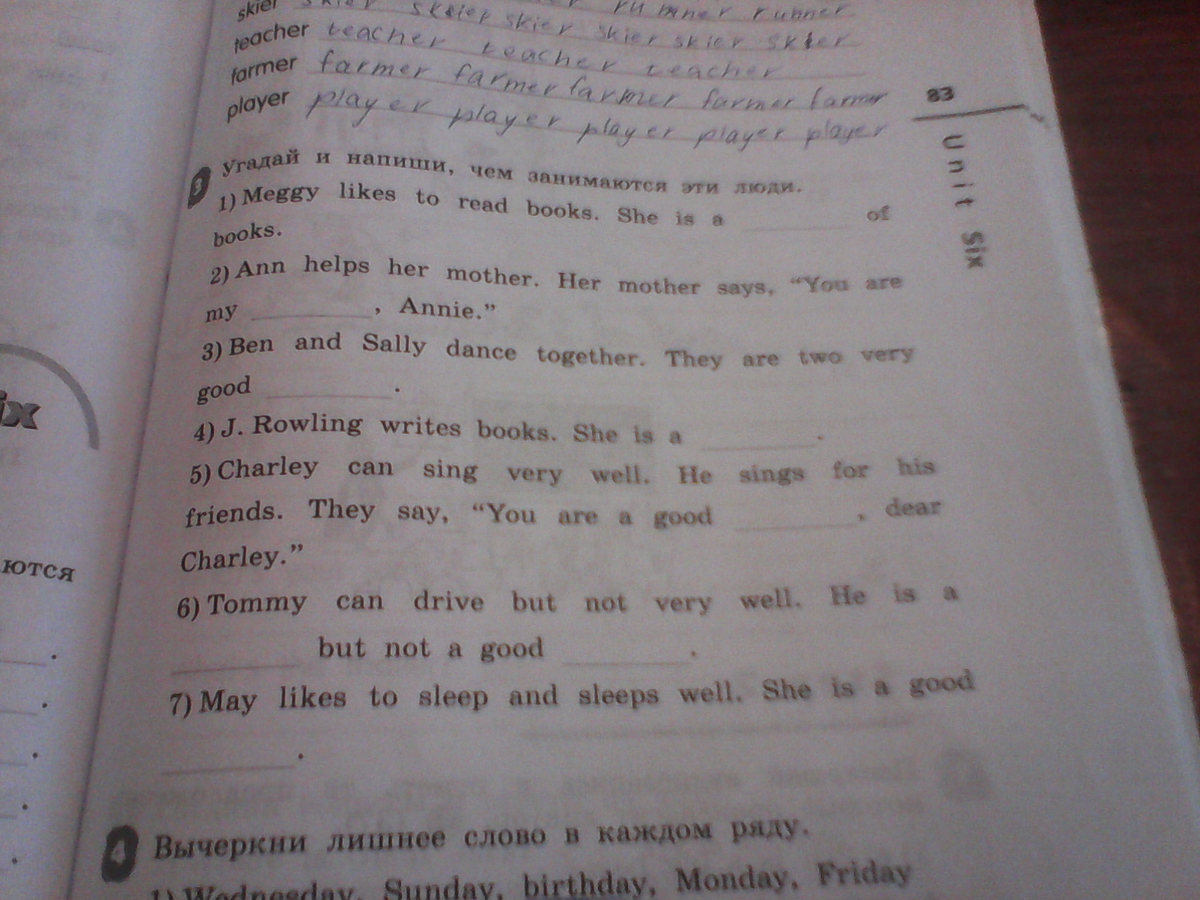 skier skier skier skier skier skier skier
teacher teacher teacher teacher
farmer farmer farmer farmer farmer farmer
player player player player player player
83
Unit Six
3 Угадай и напиши, чем занимаются эти люди.
1) Meggy likes to read books. She is a ________ of
books.
2) Ann helps her mother. Her mother says, “You are
my ________, Annie.”
3) Ben and Sally dance together. They are two very
good ________.
4) J. Rowling writes books. She is a ________.
5) Charley can sing very well. He sings for his
friends. They say, “You are a good ________, dear
Charley.”
6) Tommy can drive but not very well. He is a
________ but not a good ________.
7) May likes to sleep and sleeps well. She is a good
________.
4 Вычеркни лишнее слово в каждом ряду.
1) Wednesday, Sunday, birthday, Monday, Friday
ix
ются